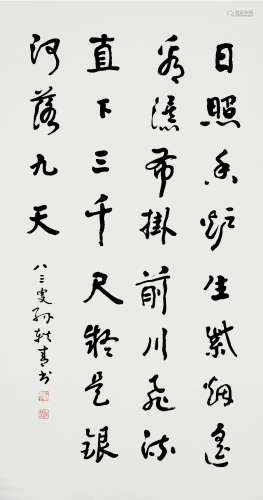 日照香炉生紫烟遥
看瀑布掛前川飛流
直下三千尺疑是銀
河落九天
八三叟孫軼青书